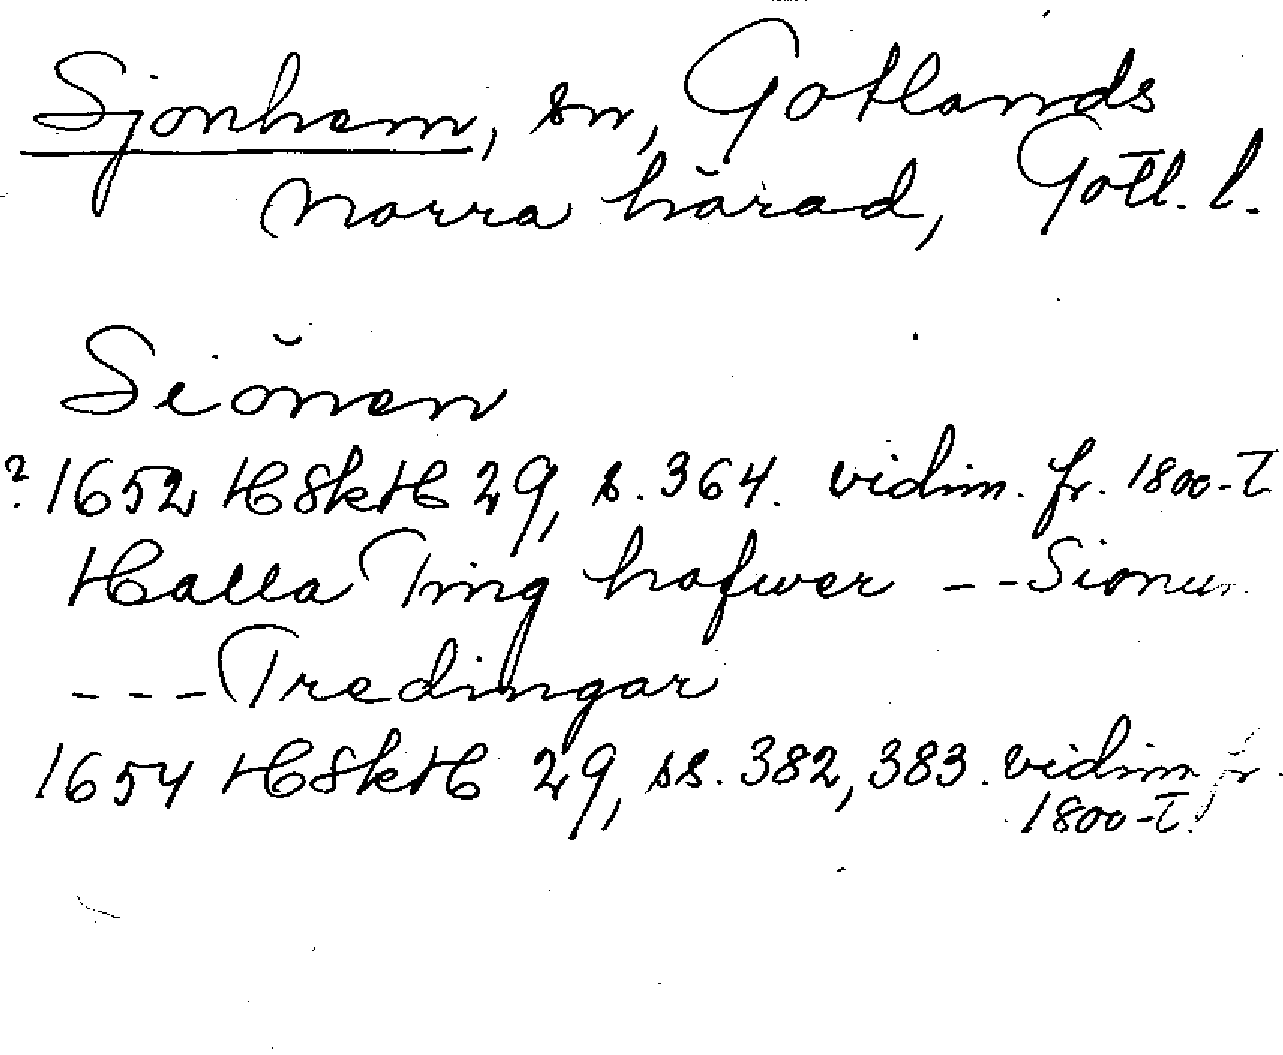 Sjonhem, sn, Gotlands
norra härad, Gotl. l.
Siönen
? 1652 HSkH 29, s. 364. vidim. fr. 1800-t
Halla Ting hafwer - - Sionun
- - - Tredingar
1654 HSkH 29, ss. 382, 383. vidim fr.
1800-t.